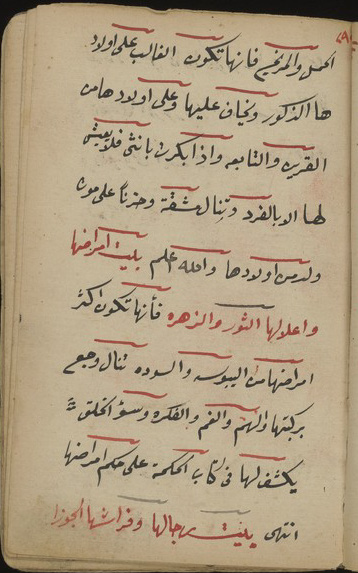 الحمل والمريخ فانها تكون الغالب على اولاد
ها الذكور ويخاف عليها وعلى اولادها من
القرينه والتابعه واذا بكرت بانثى فلا يعيش
لها الا بالفرد وتنال مشقة وحزنا على موت
ولد من اولادها والله اعلم بليت امراضها
واعلالها الثور والزهره فانها تكون اكثر
امراضها من اليبوسه والسوده تنال وجع
بركبتها والهم والغم والفكره وسؤ الخلق
يكشف لها فى كتاب الحكمة على حكم امراضها
انتهى بليت رجالها وفراشها الجوزا